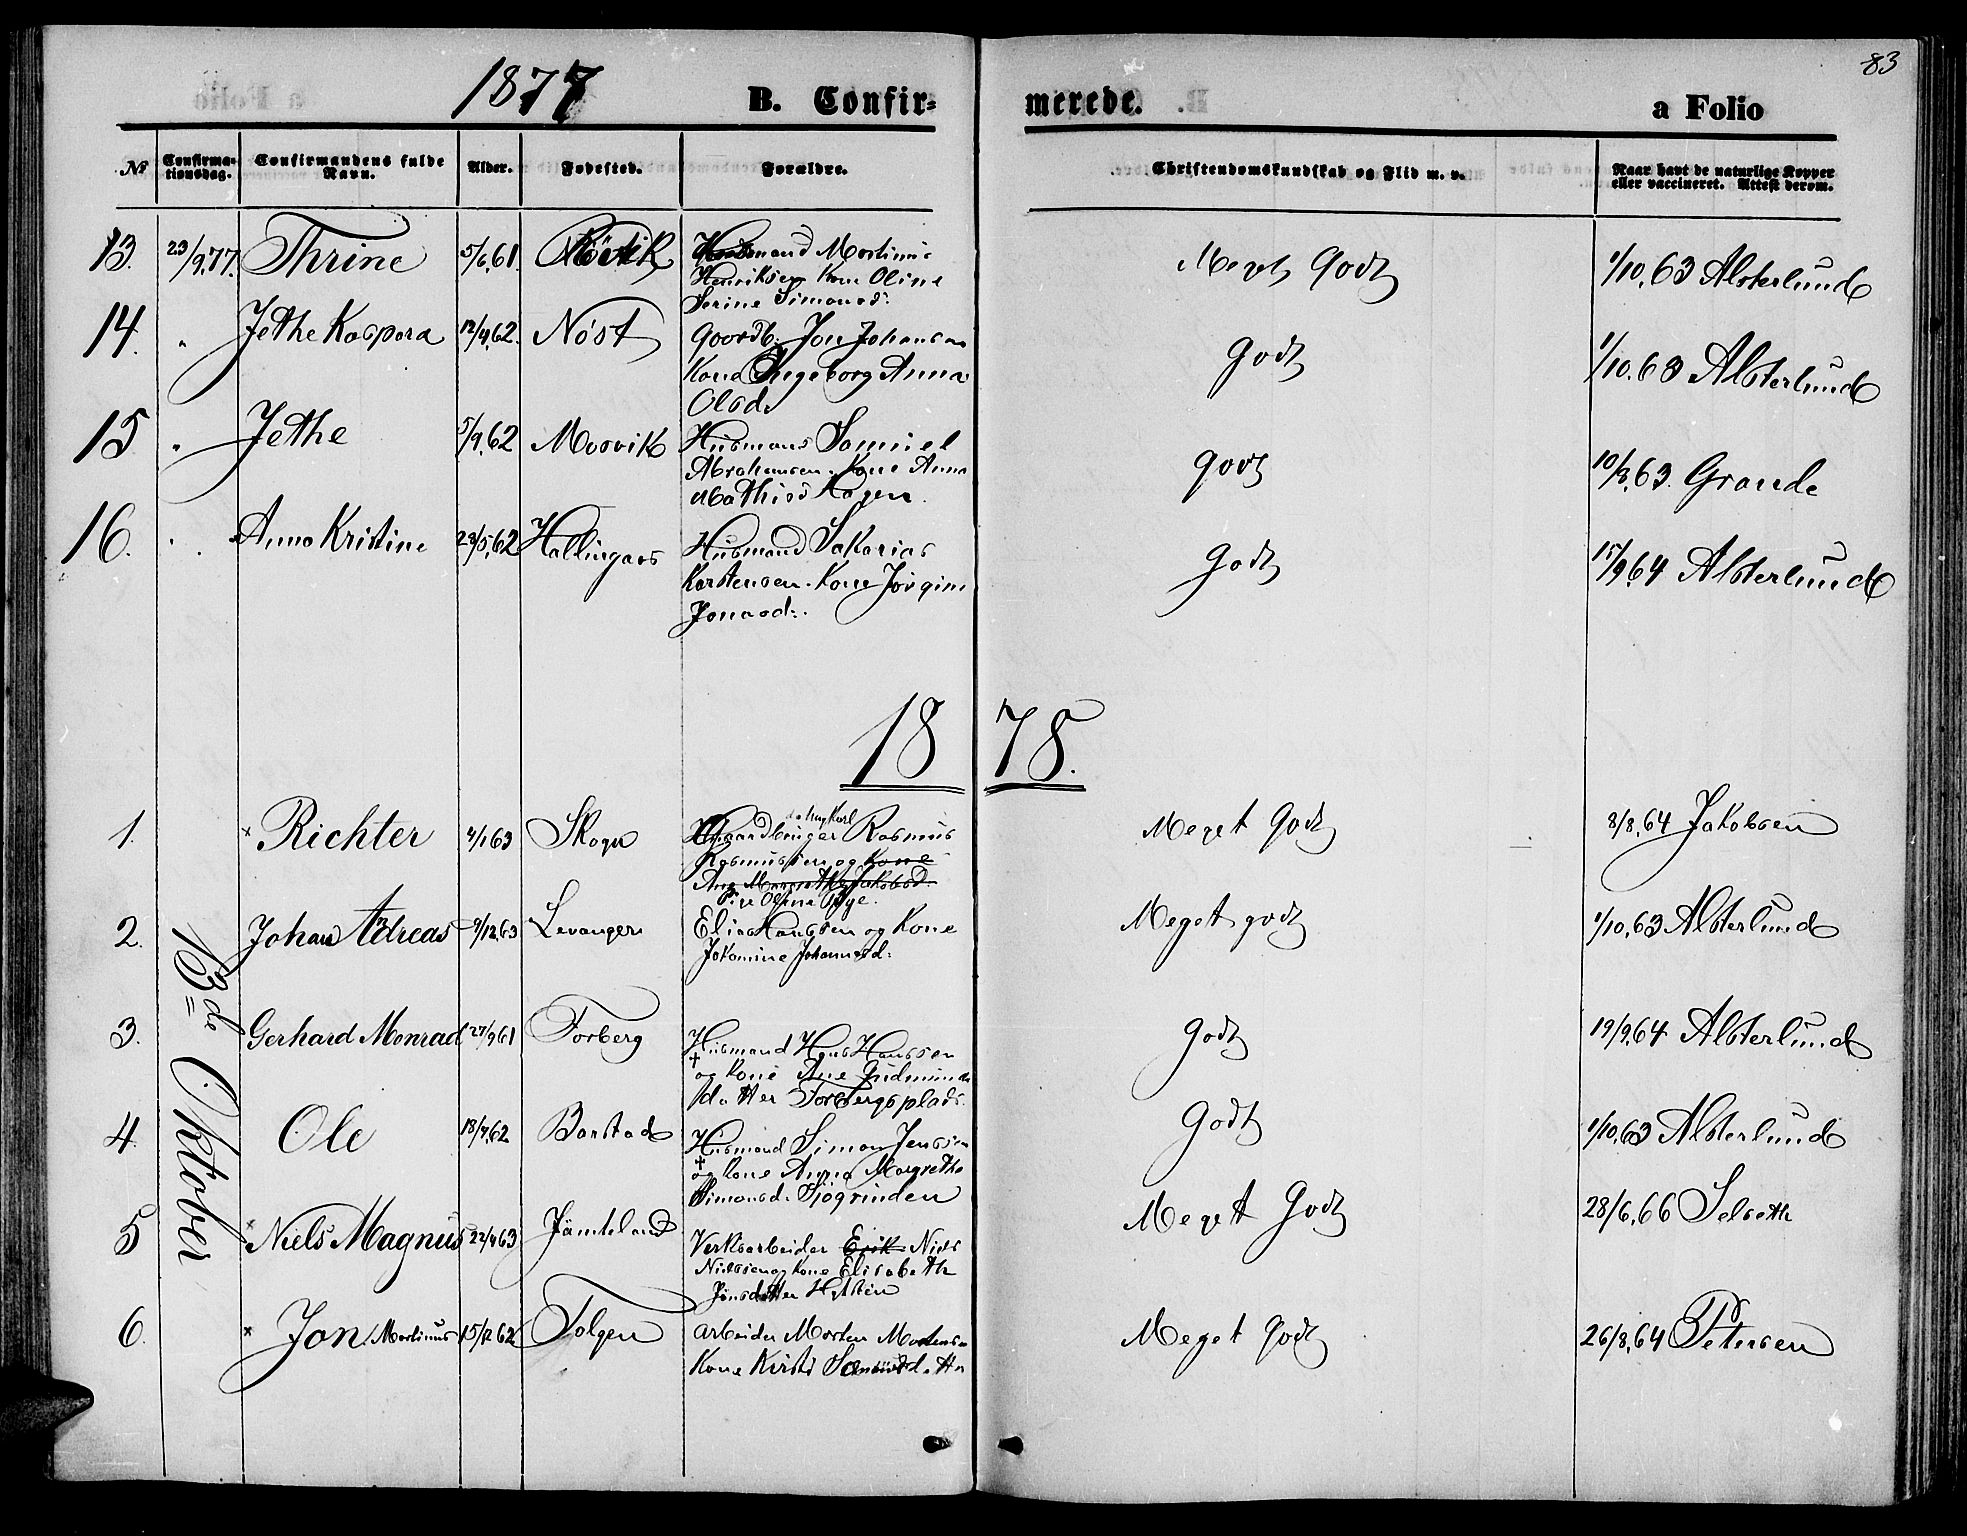 83
1877
B. Confir-
merede.
a Folio
№
Confirma-
tionsdag.
Confirmandens fulde
Navn.
Alder.
Fødested.
Forældre.
Christendomskundskab og Flid m. v.
Naar havt de naturlige Kopper
eller vaccineret. Attest derom.
13. 23/9.77. Thrine 5/6.61. Husmand Martinus
Henriksen Kone Oline
Serine Simonsd:
Meget Godt 1/10.63 Alsterlund
14. " Jethe Kaspara 12/4.62. Nøst Goardb. Jon Johansen
Kone Ingeborg Anna
Olsd.
Godt 1/10.63 Alsterlund
15 " Jethe 5/9.62 Mosvik Husmand Samuel
Abrahamsen. Kone Anna
Mathisd Hagen.
godt 10/8.63. Grande
16. " Anna Kristine 23/5.62 Hallingaas Husmand Sakarias
Karstensen. Kone Jørgine
Jonasd:.
Godt 15/9.64 Alsterlund
1878.
1. × Richter 4/1 63 Skogn Gaardbruger Rasmus
Rasmussen og Kone
Ane Margrethe Jakobsd.
Pige Oline Rye.
Meget Godt 8/8.64 Jakobsen
13de Oktober
2. Johan Andreas 9/12.63 Levanger Elias Hanssen og Kone
Jakomine Johannesd:
Meget godt 1/10.63 Alsterlund
3. Gerhard Monrad 27/9 61 Forberg Husmand Hans Hanssen
† og Kone Ane Gudmunds
datter Forbergsplads.
Godt 19/9.64 Alsterlund
4. Ole 18/7.62 Barstad Husmand Simon Jenssen
† og Kone Anna Margrethe
Simonsd. Sjøgrinden
Godt 1/10.63 Alsterlund
5 × Niels Magnus 22/4 63 Jämteland Verksarbeider Erik Niels
Nielssen og Kone Elisabeth
Jonsdatter
Meget Godt 28/6.66 Selseth
6. × Jon Martinus 15/12 62 Tolgen Arbeider Morten Mortensen
Kone Kirsti
Meget Godt 26/8.64 Petersen